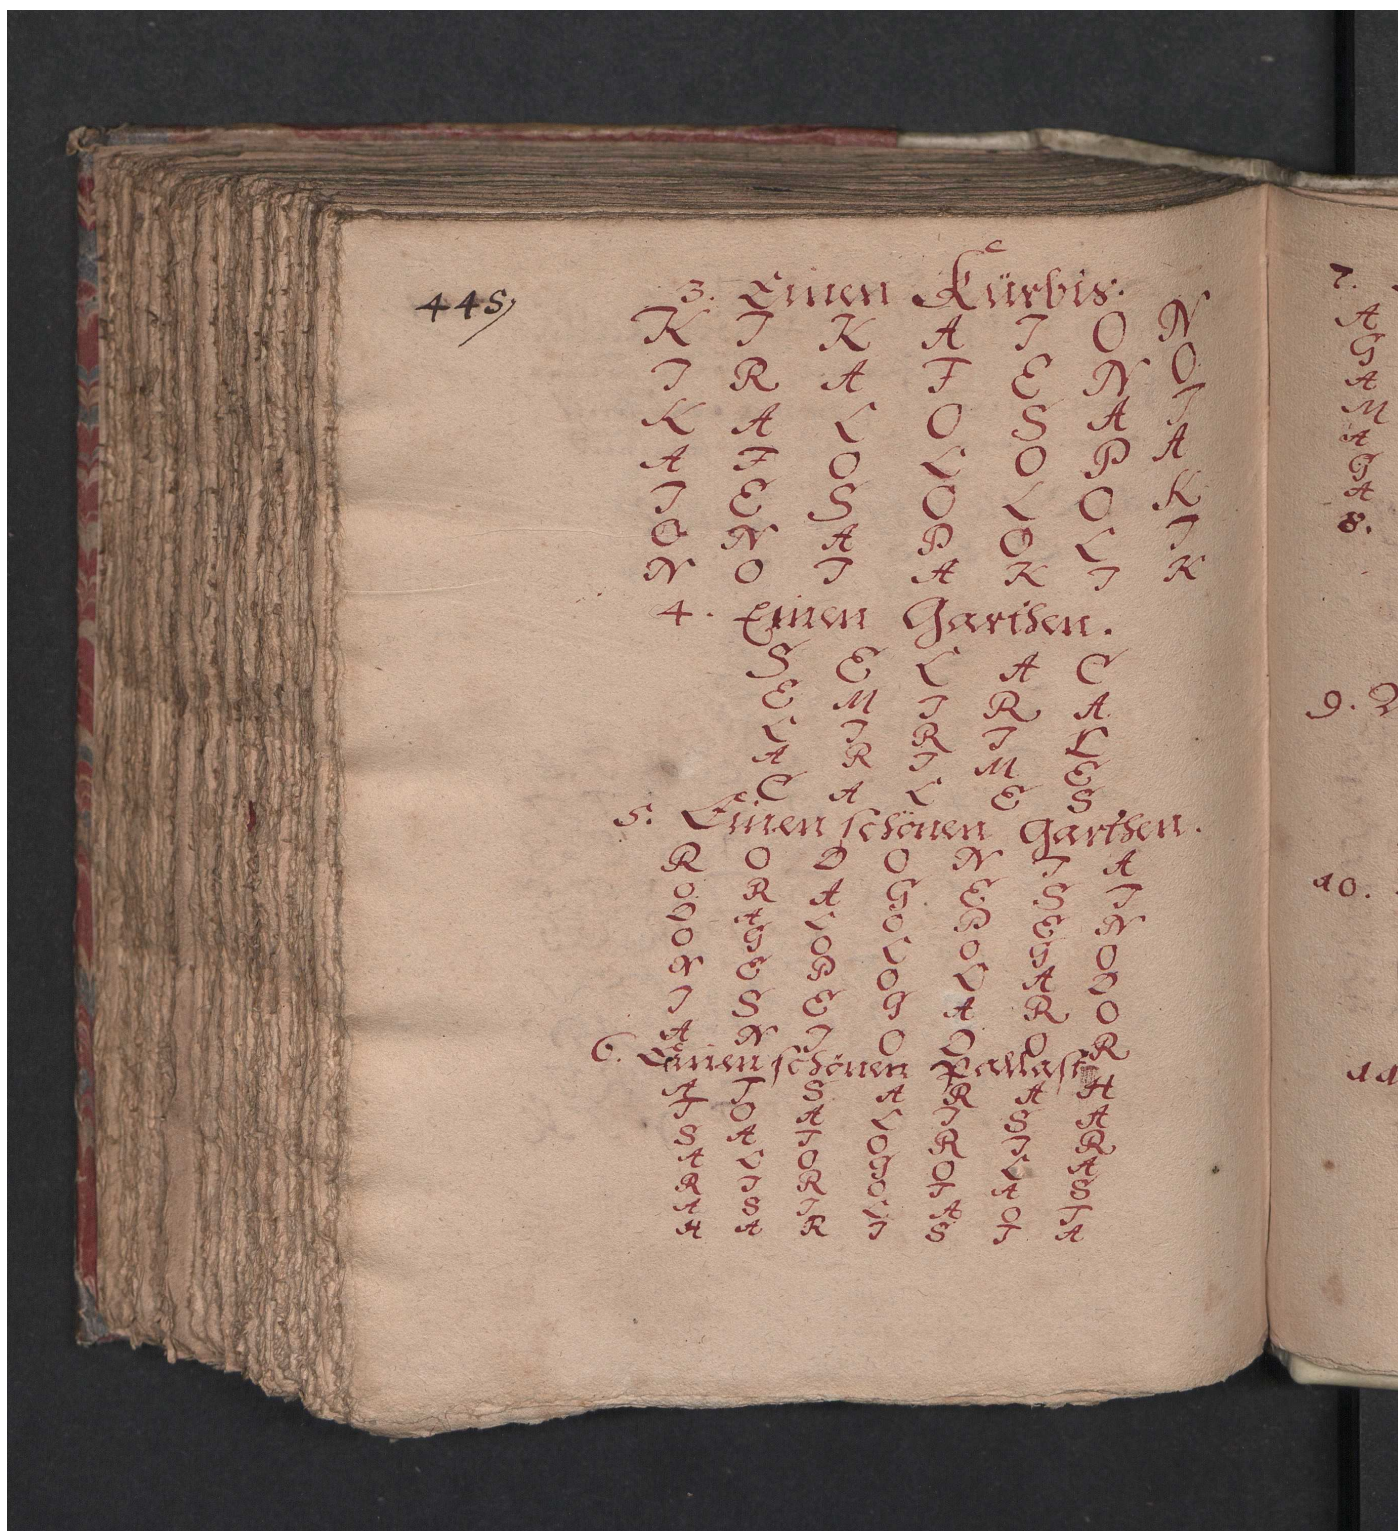 445
3. Einen Kürbis.
K I K A I O N
I R A F E N O
K A L O S A I
A F O L O P A
I E S O L O K
O N A P O L I
N O I A K I K
4. Einen Garthen.
S E L A C
E M I R A
L I R I L
A R I M E
C A L E S
5. Einen schönen Garthen.
R O D O N I A
O R A G E S I
D A L O P E N
O G O L O G O
N E P O L A D
I S E G A R O
A N I O D O R
6. Einen schönen Pallast
A I S A R A H
I O A L I S A
S A I O R I R
A L O G O L A
R I R O I A S
A S I L A O I
H A R I S I A
7.
A
G
A
M
A
G
A
8.
9.
10.
11